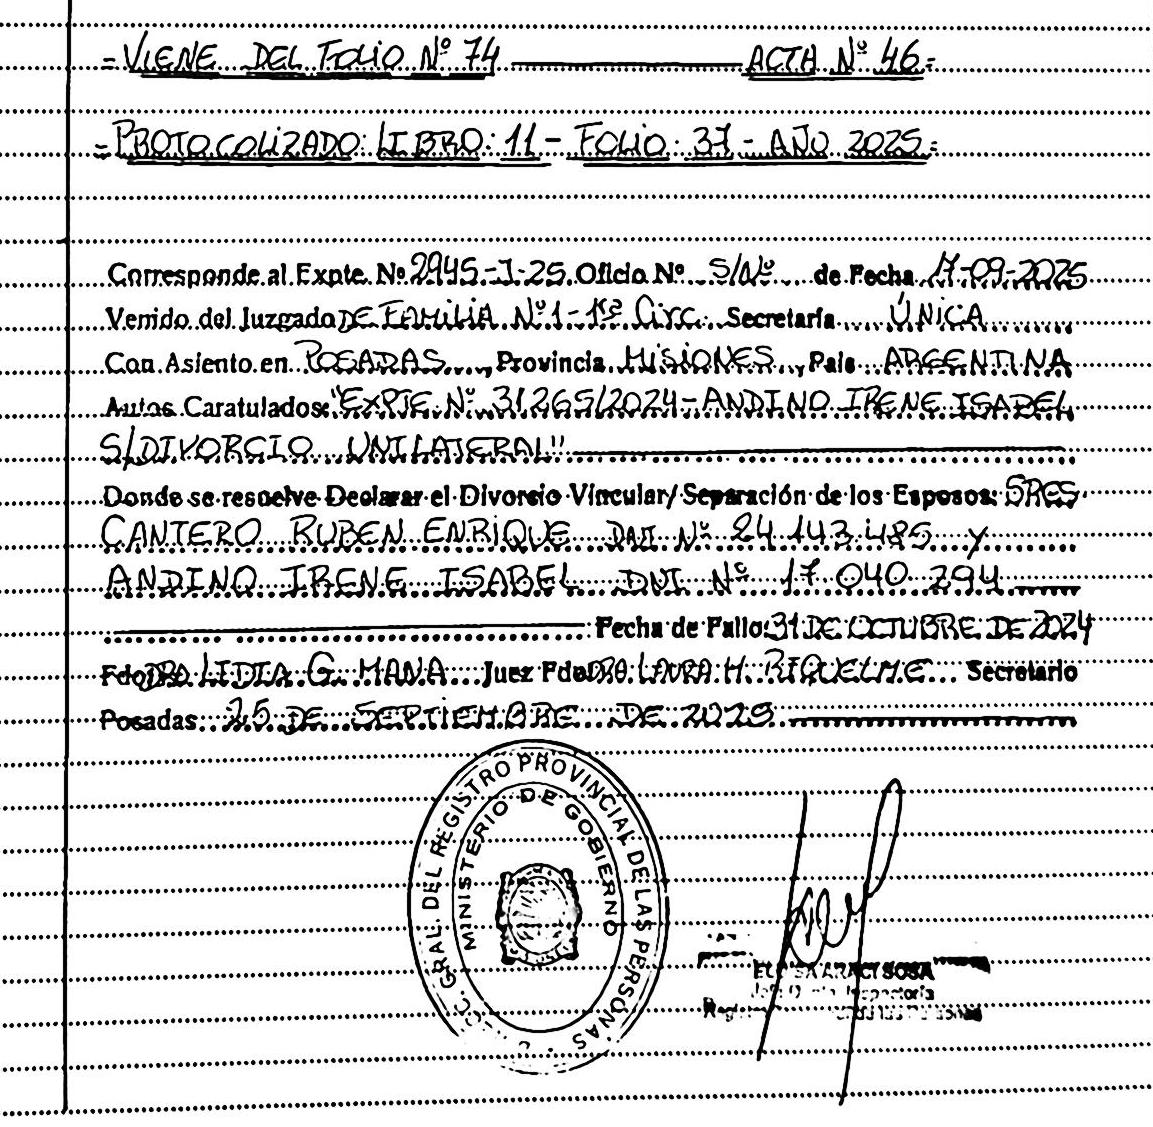 = VIENE DEL FOLIO Nº 74 ACTA Nº 46 =
= PROTOCOLIZADO: LIBRO: 11 - FOLIO: 37 - AÑO 2025 =
Corresponde al Expte. Nº 2945-I-25. Oficio Nº S/Nº de Fecha 17-09-2025
Venido del Juzgado DE FAMILIA Nº 1 - 1ra Circ. Secretaria ÚNICA
Con Asiento en POSADAS, Provincia MISIONES, Pais ARGENTINA
Autos Caratulados: "EXPTE Nº 31265/2024 - ANDINO IRENE ISABEL
S/DIVORCIO UNILATERAL"
Donde se resuelve Declarar el Divorsio Vincular/Separación de los Esposos: SRES
CANTERO RUBEN ENRIQUE DNI Nº 24.143.485 y
ANDINO IRENE ISABEL DNI Nº 17.040.294
Fecha de Fallo: 31 DE OCTUBRE DE 2024
Fdo DRA LIDIA G. MANA Juez Fdo DRA LAURA M. RIQUELME Secretario
Posadas 25 DE SEPTIEMBRE DE 2025
GRAL. DEL REGISTRO PROVINCIAL DE LAS PERSONAS
MINISTERIO DE GOBIERNO
ARACI SOSA